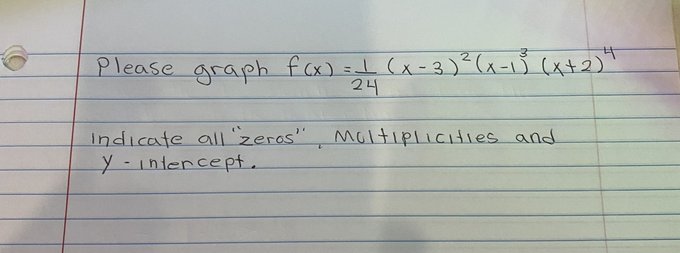 Please graph f(x) = 1/24 (x-3)²(x-1)³(x+2)⁴
indicate all "zeros", Multiplicities and
y-intercept.